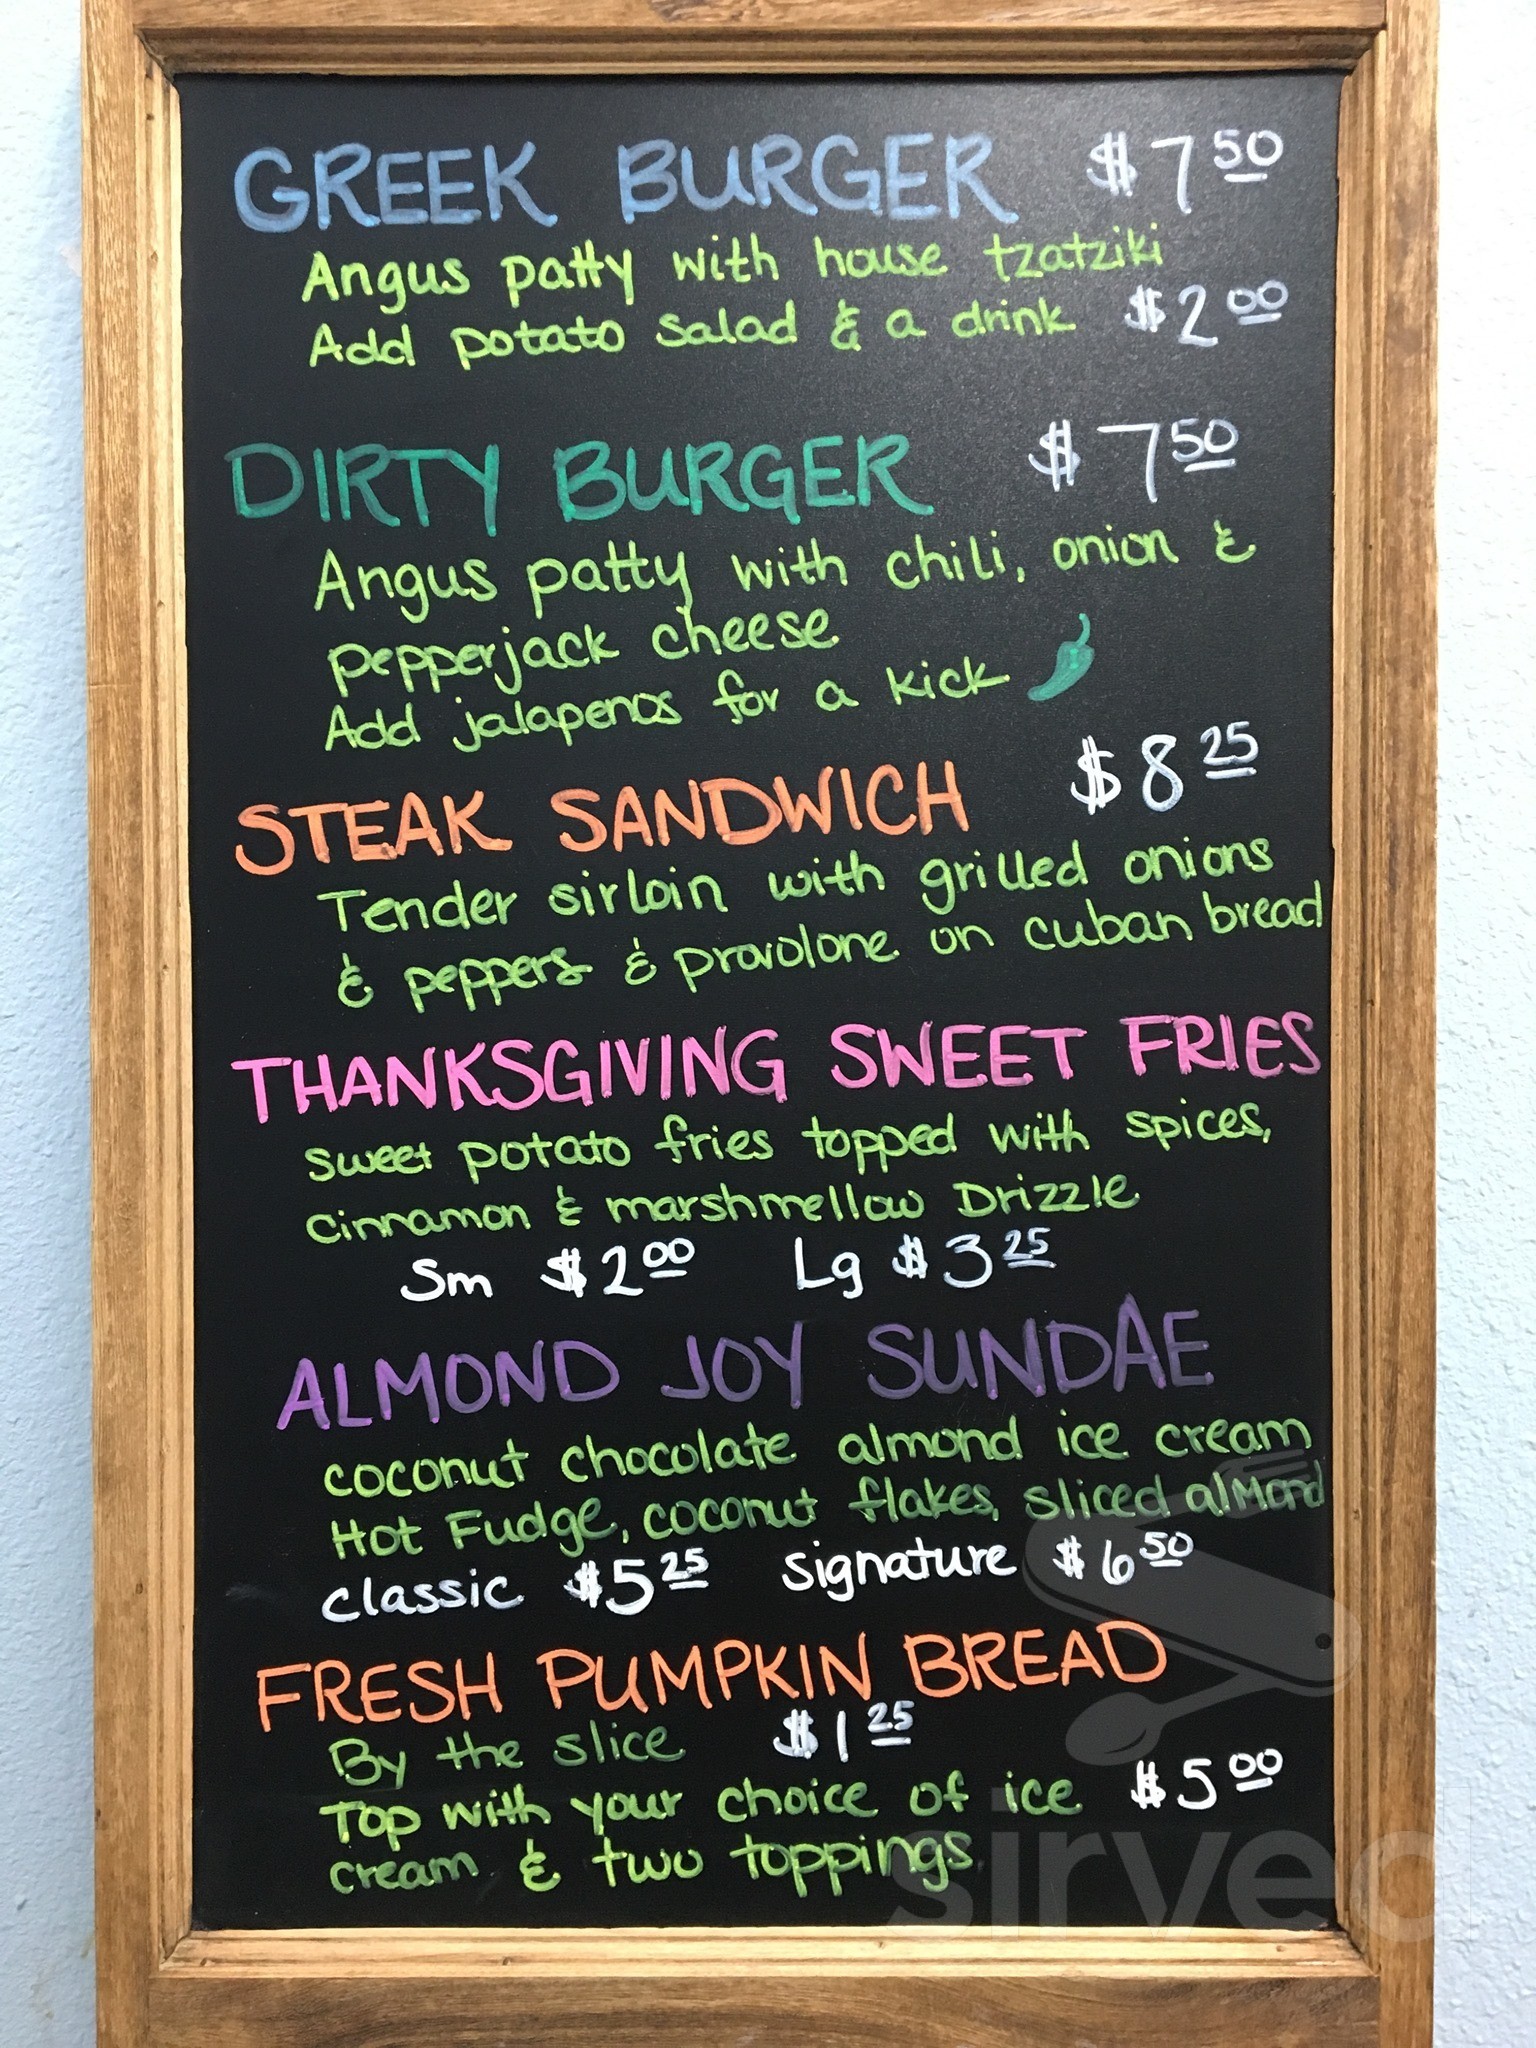 GREEK BURGER $7 50
Angus patty with house tzatziki
Add potato salad & a drink $2 00
DIRTY BURGER $7 50
Angus patty with chili, onion &
pepperjack cheese
Add jalapenos for a kick
STEAK SANDWICH $8 25
Tender sirloin with grilled onions
& peppers & provolone on cuban bread
THANKSGIVING SWEET FRIES
sweet potato fries topped with spices,
cinnamon & marshmellow Drizzle
Sm $2 00 Lg $3 25
ALMOND JOY SUNDAE
coconut chocolate almond ice cream
Hot Fudge, coconut flakes, sliced almond
classic $5 25 signature $6 50
FRESH PUMPKIN BREAD
By the slice $1 25
Top with your choice of ice $5 00
cream & two toppings
sirved